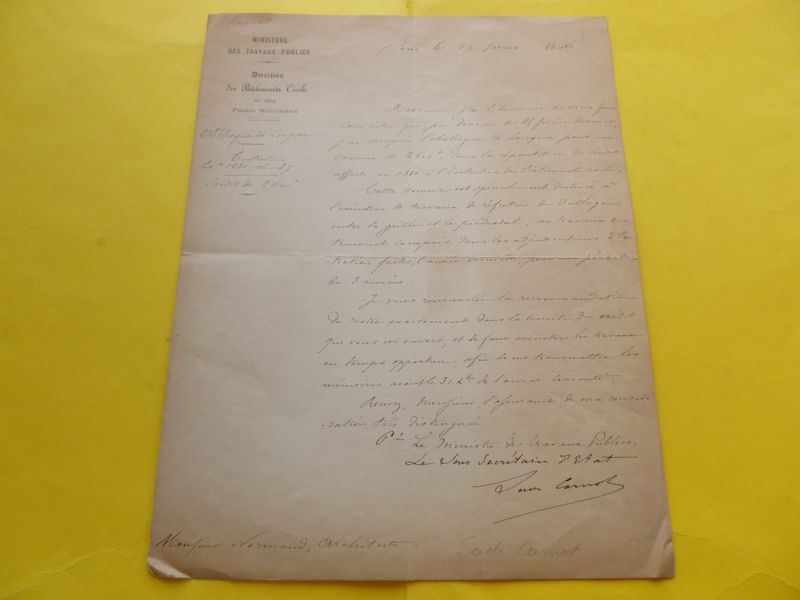 Carnot
MINISTÈRE
DES TRAVAUX PUBLICS
Direction
des Bâtiments Civils
et des
Palais Nationaux
Obélisque de Louqsor
Entretien
1880
Crédit de 2600
Paris le 13 mars 1880
Monsieur, j'ai l'honneur de vous faire
connaître que par décision du 21 février dernier,
j'ai compris l'obélisque de Louqsor pour une
somme de 2600 dans la répartition du crédit
affecté, en 1880 à l'Entretien des Bâtiments Civils.
Cette somme est spécialement destinée à
l'exécution de travaux de réfection du dallage
entre la grille et le piédestal; ces travaux se
trouvent compris dans les adjudications d'En-
-tretien faites, l'année dernière, pour une période
de 3 années.
Je vous renouvelle la recommandation
de rester exactement dans la limite du crédit
qui vous est ouvert, et de faire exécuter les travaux
en temps opportun, afin de me transmettre les
mémoires avant le 31 Xbre de l'année courante.
Recevez, Monsieur, l'assurance de ma considé-
-ration très distinguée.
Pr Le Ministre des Travaux Publics.
Le Sous Secrétaire d'Etat
Sadi Carnot
Monsieur Normand, Architecte
Sadi Carnot